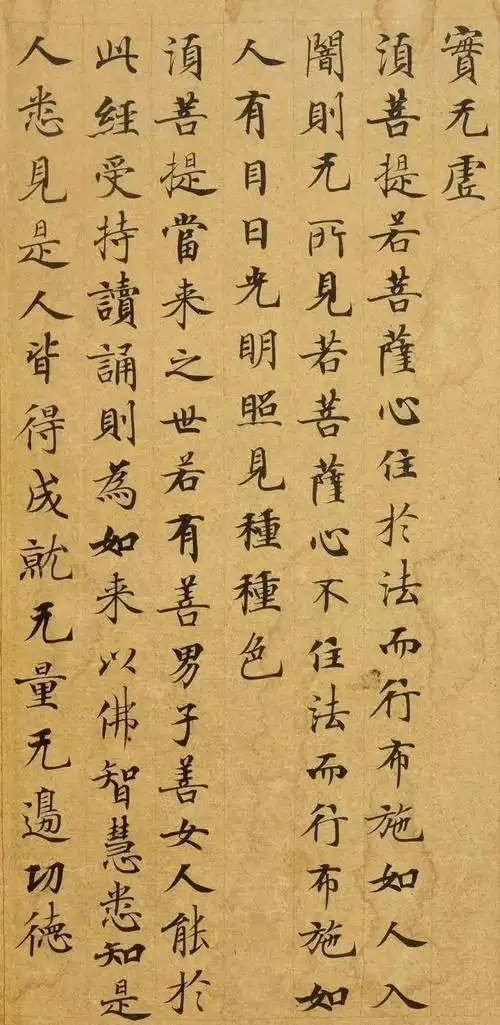 實无虛
湏菩提若菩薩心住於法而行布施如人入
闇則无所見若菩薩心不住法而行布施如
人有目日光明照見種種色
湏菩提當来之世若有善男子善女人能於
此經受持讀誦則為如来以佛智慧悉知是
人悉見是人皆得成就无量无邊切德